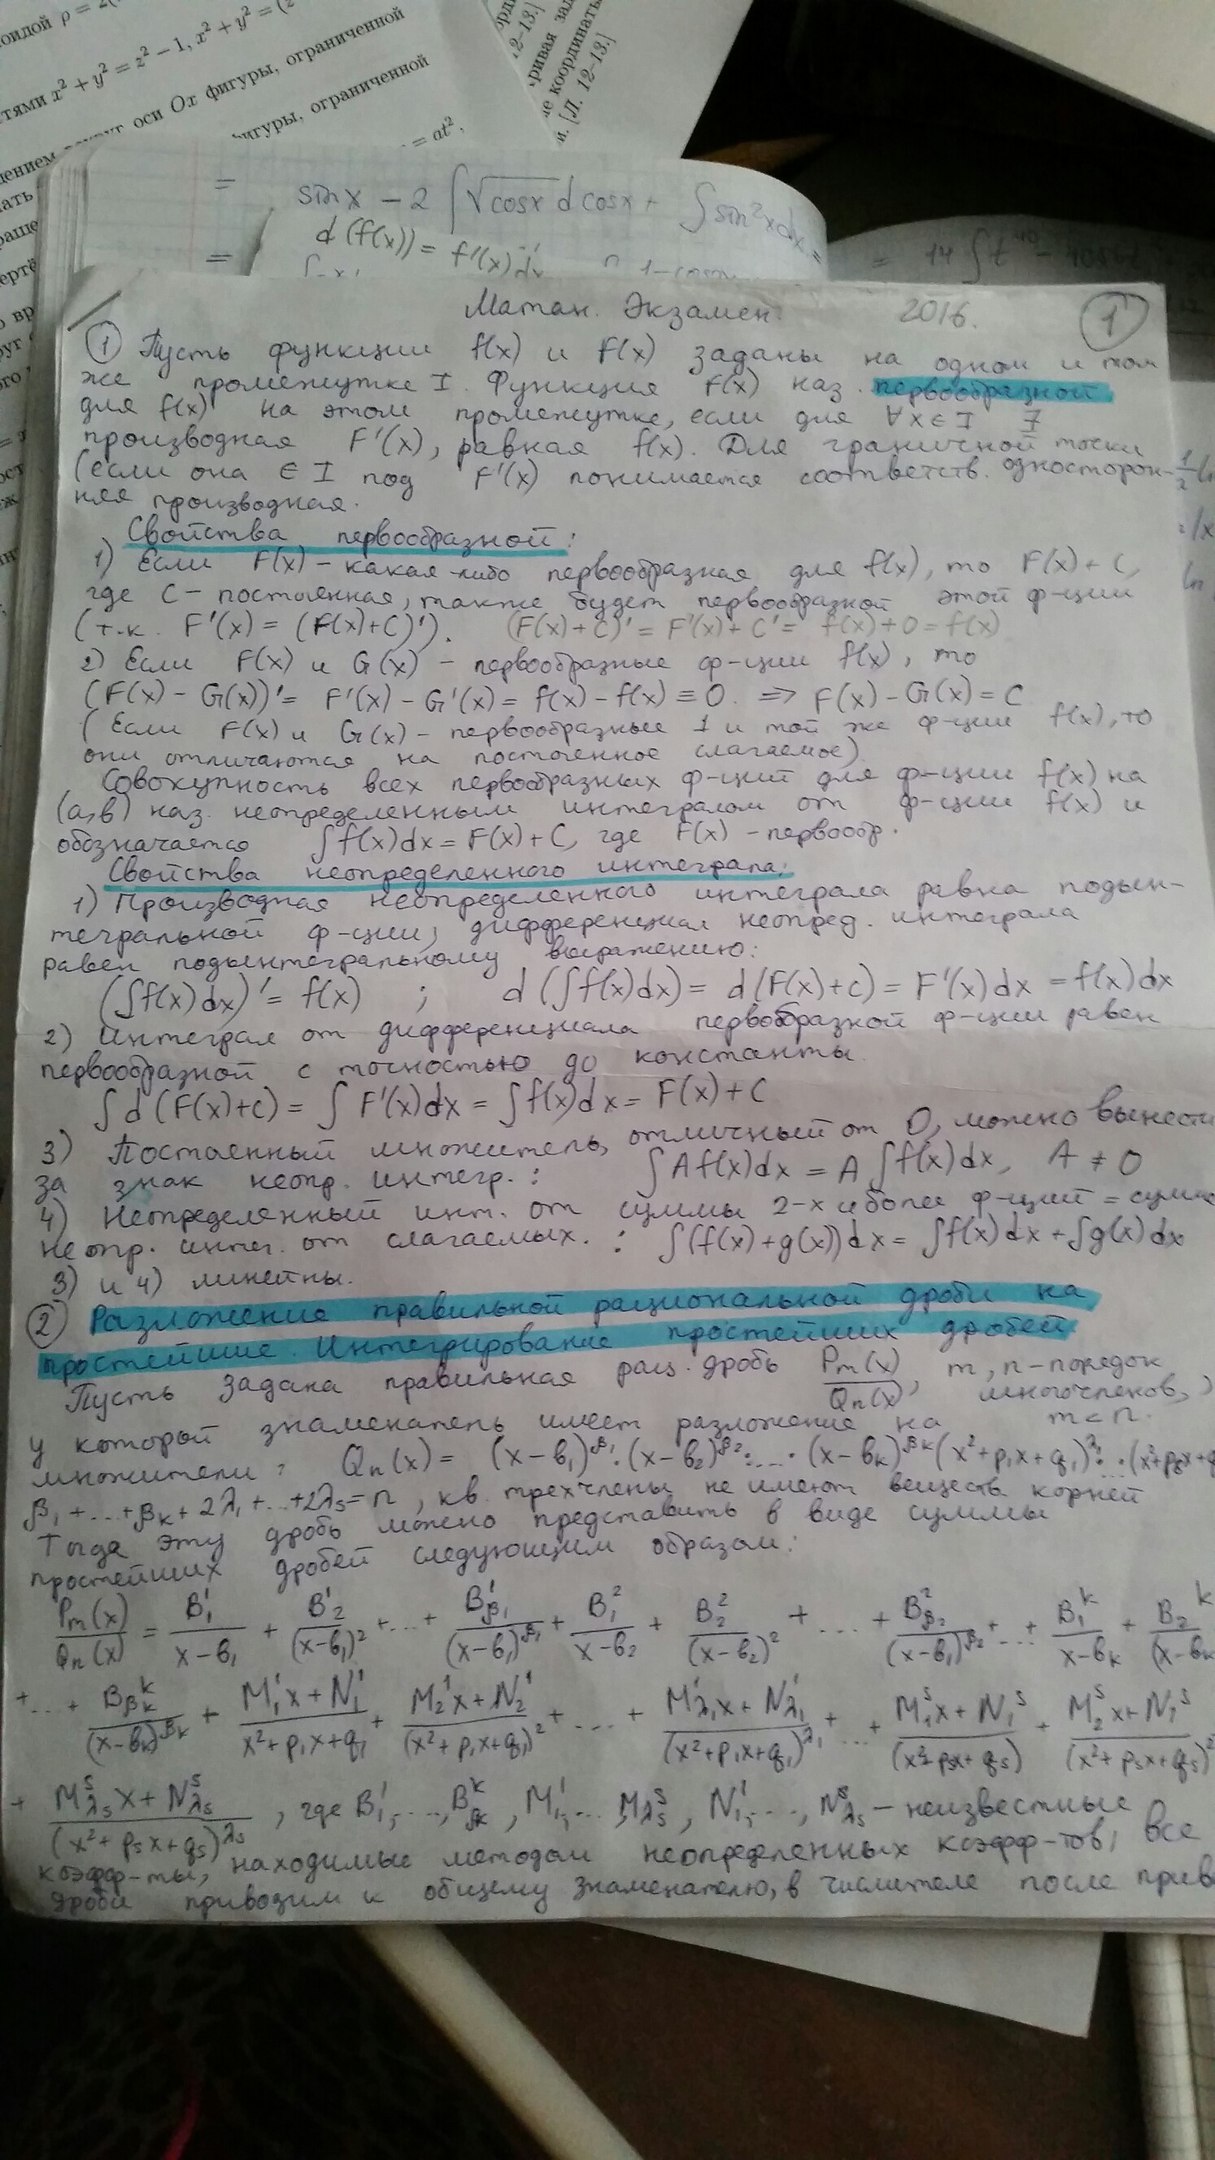 оидой ρ = 2(
тями x² + y² = z² − 1, x² + y² = (z
оси Ox фигуры, ограниченной
фигуры, ограниченной
= at².
12–13.]
ривая зад
е координаты
и. [Л. 12–13.]
= sin x − 2 ∫√cosx d cosx + ∫ sin²x dx =
d(f(x)) = f'(x) dx
= 14 ∫ t
Матан. Экзамен 2016. 1
① Пусть функции f(x) и F(x) заданы на одном и том
же промежутке I. Функция F(x) наз. первообразной
для f(x) на этом промежутке, если для ∀x∈I ∃
производная F'(x), равная f(x). Для граничной точки
(если она ∈ I под F'(x) понимается соответств. односторон-
няя производная.
Свойства первообразной:
1) Если F(x) – какая-либо первообразная для f(x), то F(x) + C,
где C – постоянная, также будет первообразной этой ф-ции
(т.к. F'(x) = (F(x)+C)'). (F(x)+C)' = F'(x) + C' = f(x) + 0 = f(x)
2) Если F(x) и G(x) – первообразные ф-ции f(x), то
(F(x) − G(x))' = F'(x) − G'(x) = f(x) − f(x) ≡ 0. ⇒ F(x) − G(x) = C
(Если F(x) и G(x) – первообразные 1 и той же ф-ции f(x), то
они отличаются на постоянное слагаемое)
Совокупность всех первообразных ф-ций для ф-ции f(x) на
(a,b) наз. неопределенным интегралом от ф-ции f(x) и
обозначается ∫f(x)dx = F(x) + C, где F(x) – первообр.
Свойства неопределенного интеграла:
1) Производная неопределенного интеграла равна подын-
тегральной ф-ции, дифференциал неопред. интеграла
равен подынтегральному выражению:
(∫f(x)dx)' = f(x) ; d(∫f(x)dx) = d(F(x)+C) = F'(x)dx = f(x)dx
2) Интеграл от дифференциала первообразной ф-ции равен
первообразной с точностью до константы.
∫d(F(x)+C) = ∫F'(x)dx = ∫f(x)dx = F(x) + C
3) Постоянный множитель, отличный от 0, можно вынести
за знак неопр. интегр.: ∫Af(x)dx = A∫f(x)dx, A ≠ 0
4) Неопределенный инт. от суммы 2-х и более ф-ций = сумме
неопр. интег. от слагаемых. : ∫(f(x)+g(x))dx = ∫f(x)dx + ∫g(x)dx
3) и 4) линейны.
② Разложение правильной рациональной дроби на
простейшие. Интегрирование простейших дробей
Пусть задана правильная рац. дробь Pm(x)/Qn(x), m, n – порядок многочленов, m < n.
у которой знаменатель имеет разложение на
множители: Qn(x) = (x−b₁)^β₁·(x−b₂)^β₂·…·(x−bk)^βk(x²+p₁x+q₁)^λ₁·…·(x²+psx+q
β₁+…+βk+2λ₁+…+2λs = n, кв. трехчлены не имеют веществ. корней
Тогда эту дробь можно представить в виде суммы
простейших дробей следующим образом:
Pm(x)/Qn(x) = B₁¹/(x−b₁) + B₂¹/(x−b₁)² +…+ Bβ₁¹/(x−b₁)^β₁ + B₁²/(x−b₂) + B₂²/(x−b₂)² + … + Bβ₂²/(x−b₁)^β₂ +…+ B₁ᵏ/(x−bk) + B₂ᵏ/(x−bk
+…+ Bβkᵏ/(x−bk)^βk + (M₁¹x+N₁¹)/(x²+p₁x+q₁) + (M₂¹x+N₂¹)/(x²+p₁x+q₁)² +…+ (Mλ₁¹x+Nλ₁¹)/(x²+p₁x+q₁)^λ₁ +…+ (M₁ˢx+N₁ˢ)/(x²+psx+qs) + (M₂ˢx+N₂ˢ)/(x²+psx+qs)²
+ (Mλsˢx+Nλsˢ)/(x²+psx+qs)^λs, где B₁¹,…,Bβkᵏ, M₁¹,…,Mλsˢ, N₁¹,…,Nλsˢ – неизвестные
коэфф-ты, находимые методом неопределенных коэфф-тов, все
дроби приводим к общему знаменателю, в числителе после прив